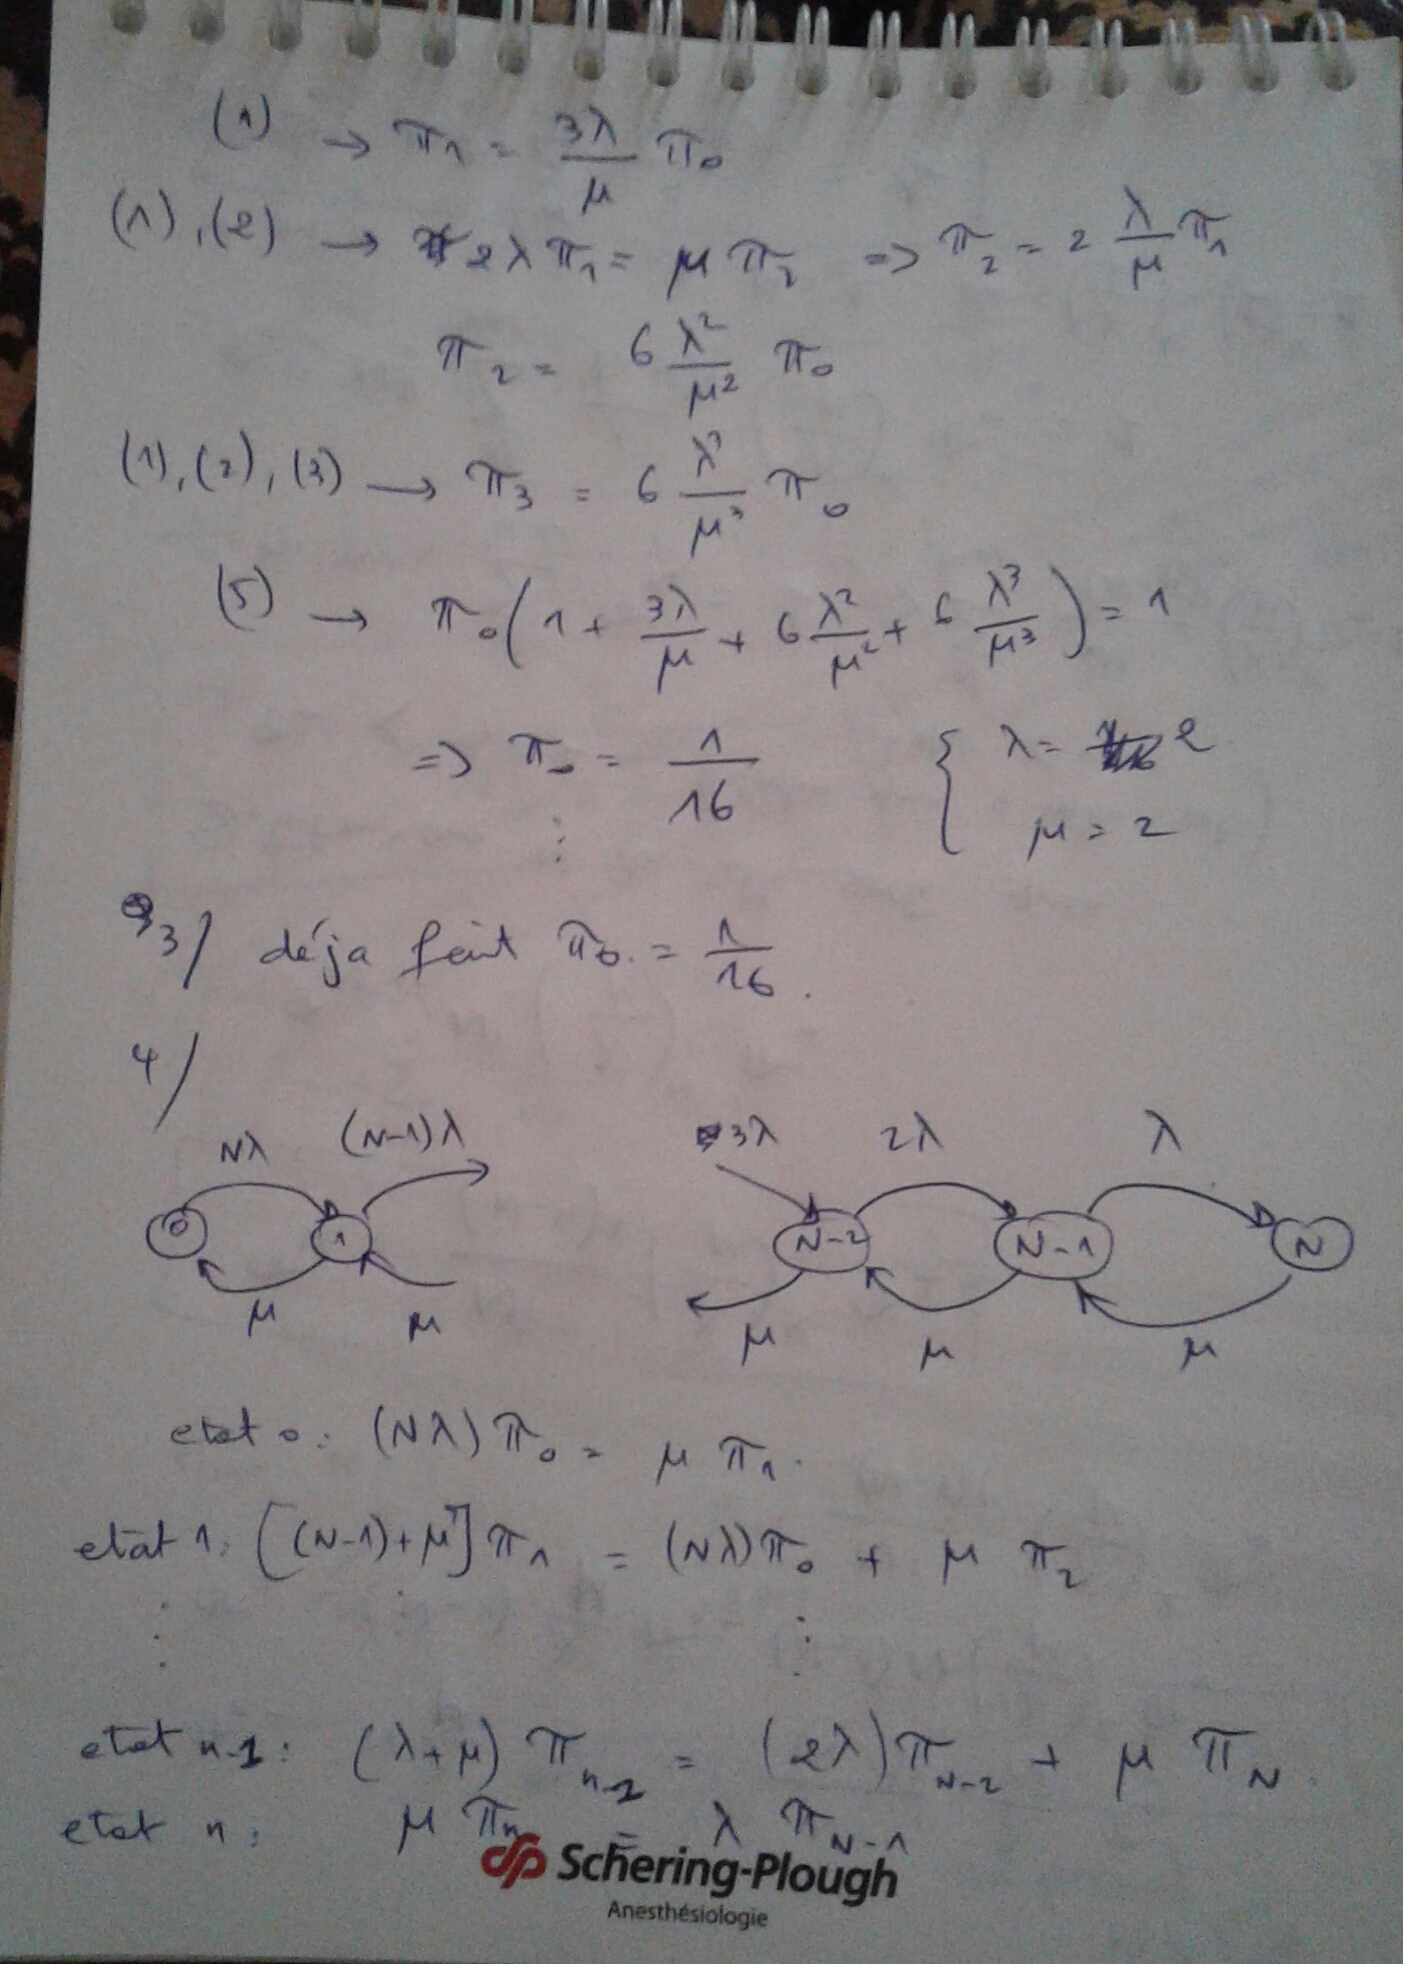 (1) → π₁ = 3λ/μ π₀
(1), (2) → 2λ π₁ = μ π₂ => π₂ = 2 λ/μ π₁
π₂ = 6 λ²/μ² π₀
(1), (2), (3) → π₃ = 6 λ³/μ³ π₀
(5) → π₀ (1 + 3λ/μ + 6 λ²/μ² + 6 λ³/μ³) = 1
=> π₀ = 1/16 { λ = 2
⋮ μ = 2
3/ déja fait π₀ = 1/16.
4/
Nλ (N-1)λ 3λ 2λ λ
0 1 N-2 N-1 N
μ μ μ μ μ
etat 0: (Nλ) π₀ = μ π₁.
etat 1: [(N-1)+μ] π₁ = (Nλ) π₀ + μ π₂
⋮ ⋮
etat n-1: (λ+μ) π = (2λ) π_{N-2} + μ π_N
etat n: μ π_n = λ π_{N-1}
Schering-Plough
Anesthésiologie